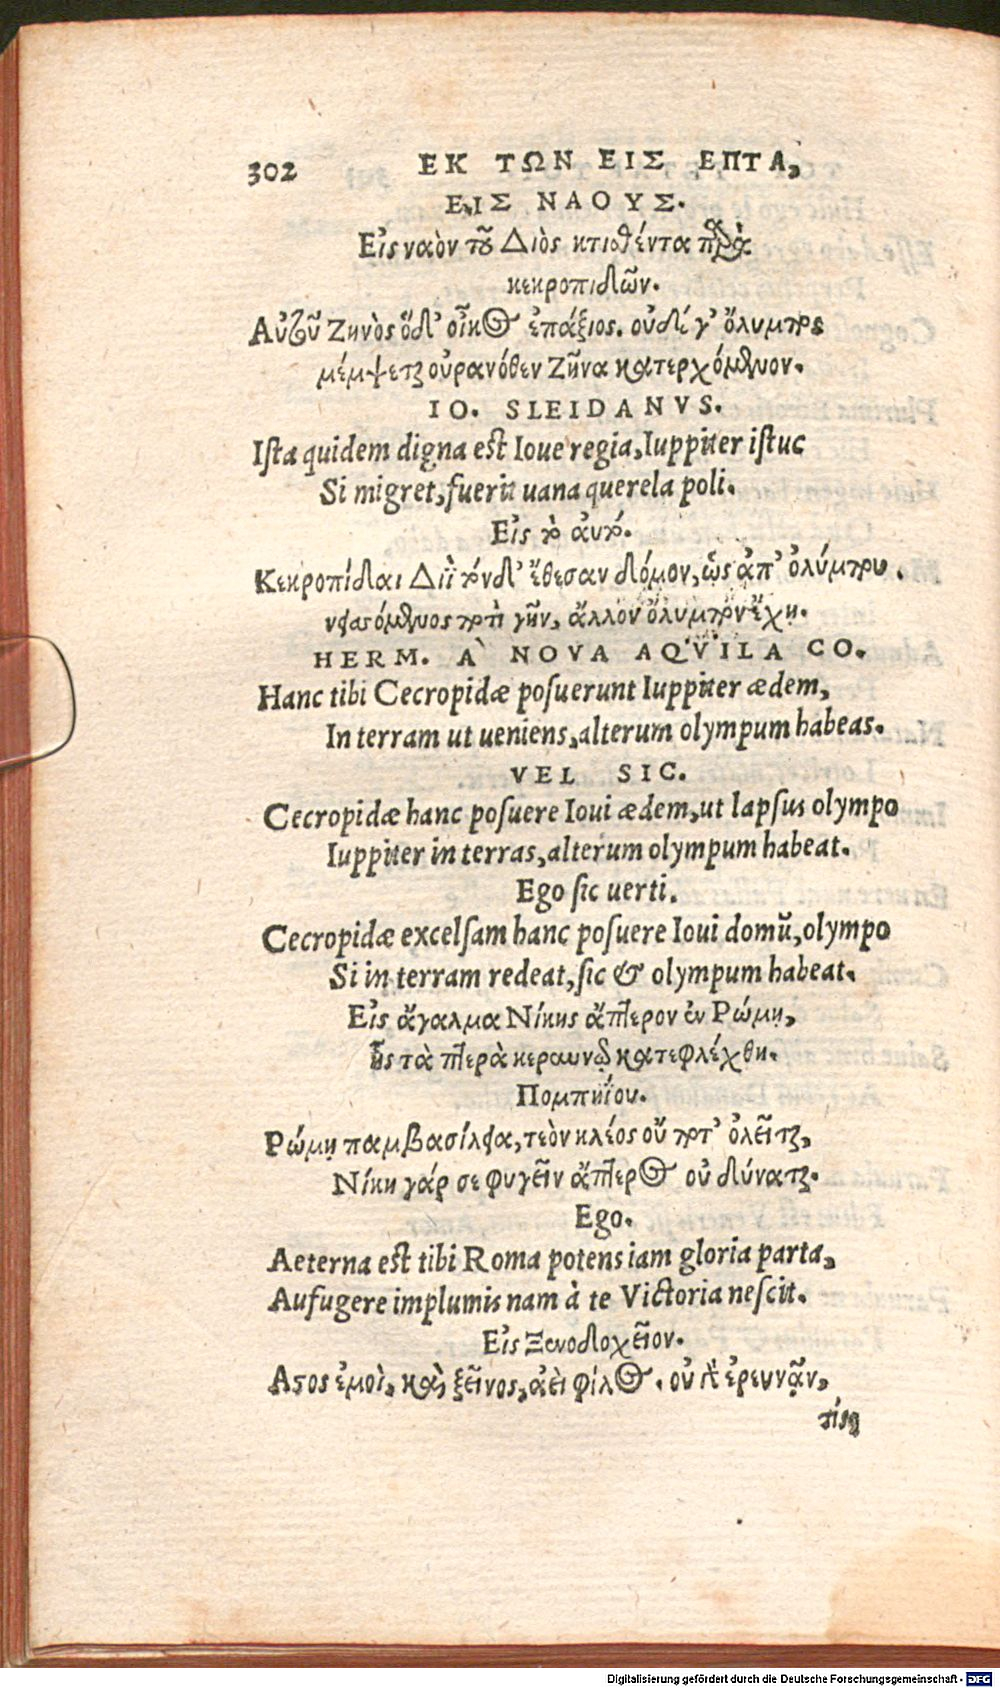 302 ΕΚ ΤΩΝ ΕΙΣ ΕΠΤΑ,
ΕΙΣ ΝΑΟΥΣ.
Εἰς ναὸν τοῦ Διὸς κτισθέντα παρὰ
κεκροπιδῶν.
Αὐτοῦ Ζηνὸς ὅδ' οἶκος ἐπάξιος. οὐδέ γ' ὄλυμπος
μέμψεται οὐρανόθεν Ζῆνα κατερχόμενον.
IO. SLEIDANVS.
Ista quidem digna est Ioue regia, Iuppiter istuc
Si migret, fuerit uana querela poli.
Εἰς τὸ αὐτό.
Κεκροπίδαι Διῒ τόνδ' ἔθεσαν δόμον, ὡς ἀπ' ὀλύμπου.
νεισόμενος ποτὶ γῆν, ἄλλον ὄλυμπον ἔχῃ.
HERM. A` NOVA AQVILA CO.
Hanc tibi Cecropidæ posuerunt Iuppiter ædem,
In terram ut ueniens, alterum olympum habeas.
VEL SIC.
Cecropidæ hanc posuere Ioui ædem, ut lapsus olympo
Iuppiter in terras, alterum olympum habeat.
Ego sic uerti.
Cecropidæ excelsam hanc posuere Ioui domũ, olympo
Si in terram redeat, sic & olympum habeat.
Εἰς ἄγαλμα Νίκης ἄπτερον ἐν Ρώμῃ,
ἧς τὰ πτερὰ κεραυνῷ κατεφλέχθη.
Πομπηΐου.
Ρώμη παμβασίλεια, τεὸν κλέος οὔ ποτ' ὀλεῖται,
Νίκη γάρ σε φυγεῖν ἄπτερος οὐ δύναται.
Ego.
Aeterna est tibi Roma potens iam gloria parta,
Aufugere implumis nam à te Victoria nescit.
Εἰς Ξενοδοχεῖον.
Αστος ἐμοὶ, καὶ ξεῖνος, ἀεὶ φίλος. οὐ γὰρ ἐρευνᾷν,
τίς
Digitalisierung gefördert durch die Deutsche Forschungsgemeinschaft - DFG